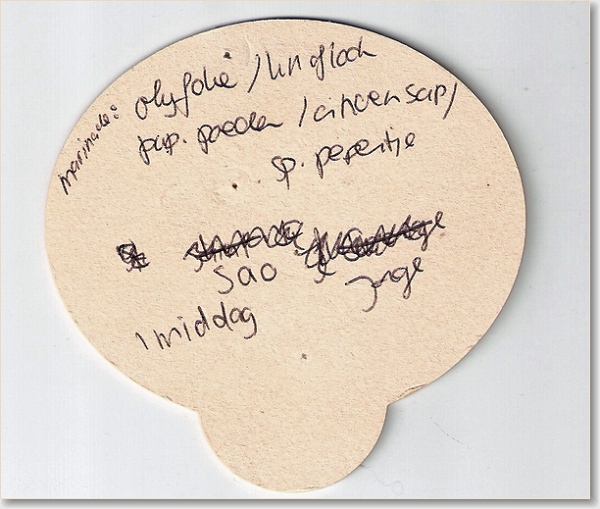 marinade: olijfolie / knoflook
pap. poeder / citroensap /
sp. pepertje
Sao jonge
1 middag